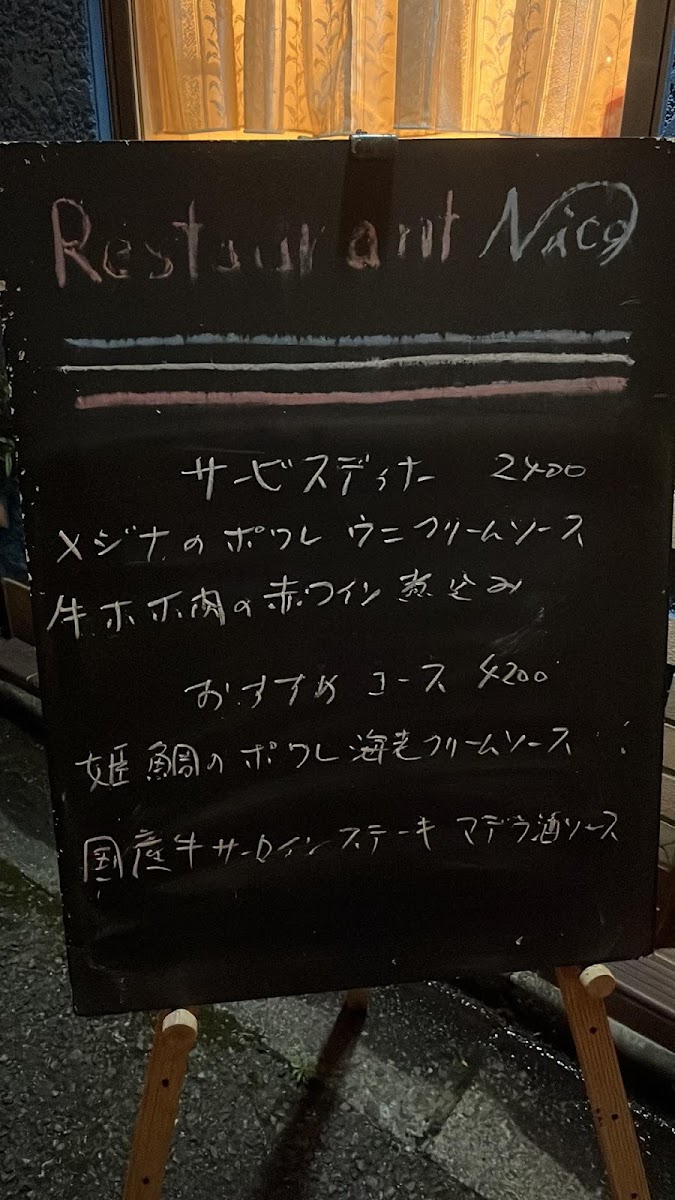 Restaurant Nico
サービスディナー 2400
メジナのポワレ ウニクリームソース
牛ホホ肉の赤ワイン煮込み
おすすめコース 4200
姫鯛のポワレ 海老クリームソース
国産牛サーロインステーキ マデラ酒ソース